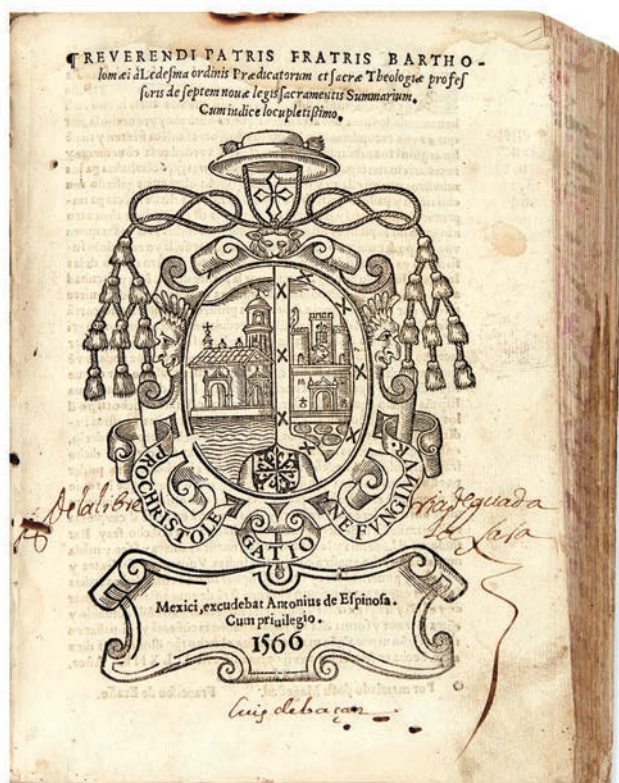 ¶REVERENDI PATRIS FRATRIS BARTHO-
lomæi à Ledesma ordinis Prædicatorum et sacræ Theologiæ profes
soris de septem nouæ legis sacramentis Summarium.
Cum indice locupletissimo.
PRO CHRISTO LE
GATIO
NE FVNGIMVR.
De la libre
ria de guada
la Jaja
Mexici, excudebat Antonius de Espinosa.
Cum priuilegio.
1566
Luis de baçan